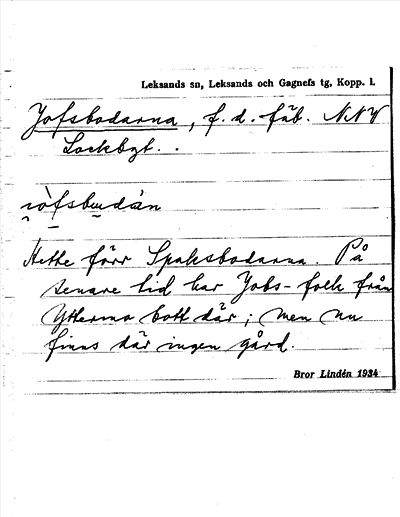 Leksands sn, Leksands och Gagnefs tg, Kopp. l.
Jofsbodarna, f. d. fäb. NNV
Lockbyt.
Hette förr Spaksbodarna. På
senare tid har Jobs-folk från
Yttermo bott där; men nu
finns där ingen gård.
Bror Lindén 1934